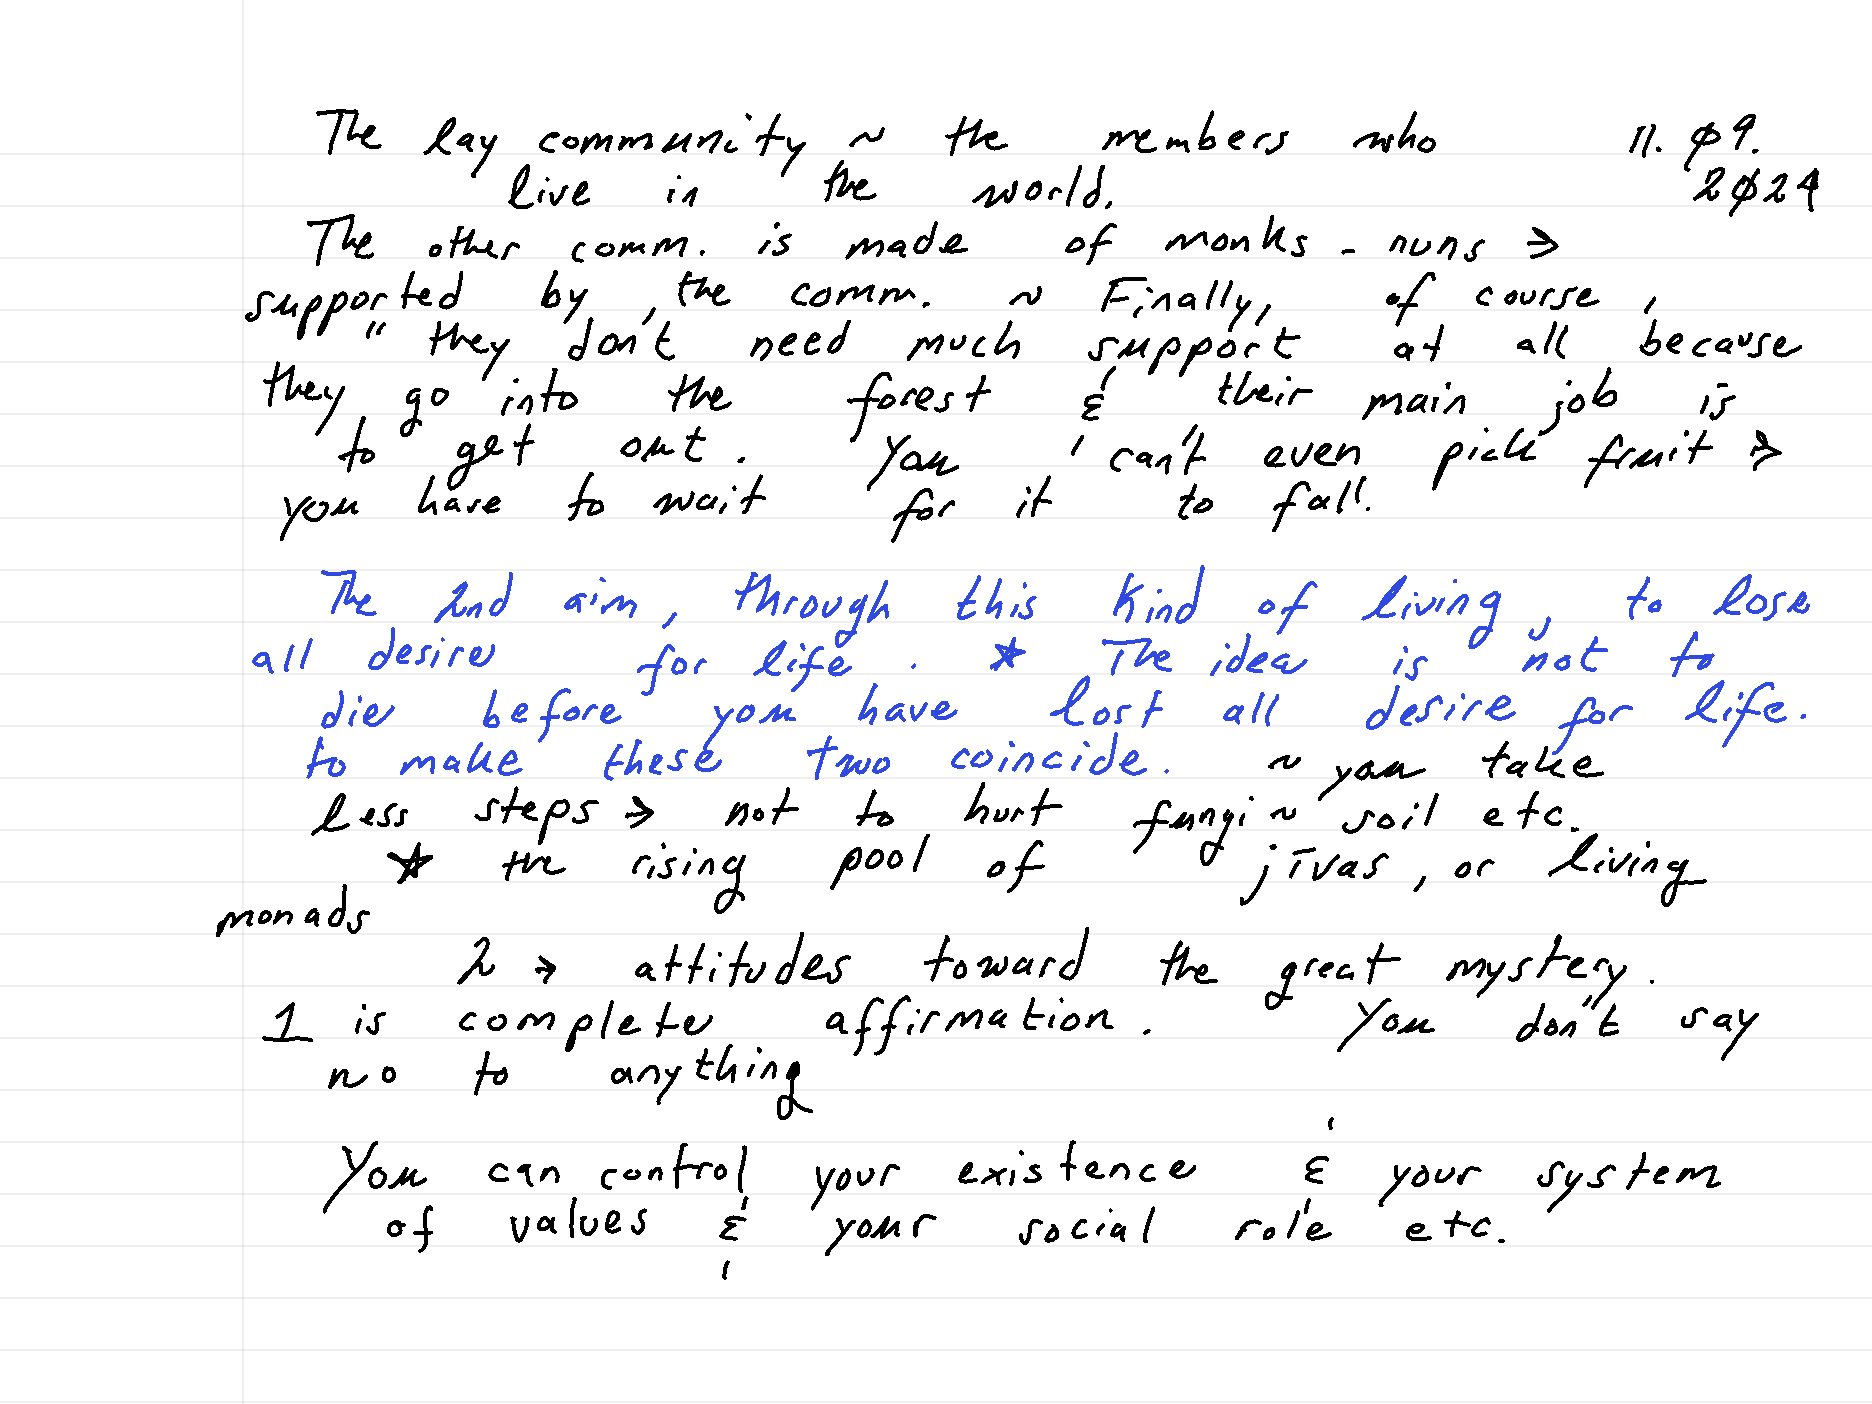 The lay community ~ the members who 11. 09.
live in the world. 2024
The other comm. is made of monks - nuns →
supported by, the comm. ~ Finally, of course,
" they don't need much support at all because
they go into the forest & their main job is
to get out. You can't even pick fruit →
you have to wait for it to fall.
The 2nd aim, through this kind of living, to lose
all desire for life. * The idea is not to
die before you have lost all desire for life.
to make these two coincide. ~ you take
less steps → not to hurt fungi ~ soil etc.
* the rising pool of jīvas, or living
monads
2 → attitudes toward the great mystery.
1 is complete affirmation. You don't say
no to anything
You can control your existence & your system
of values & your social role etc.